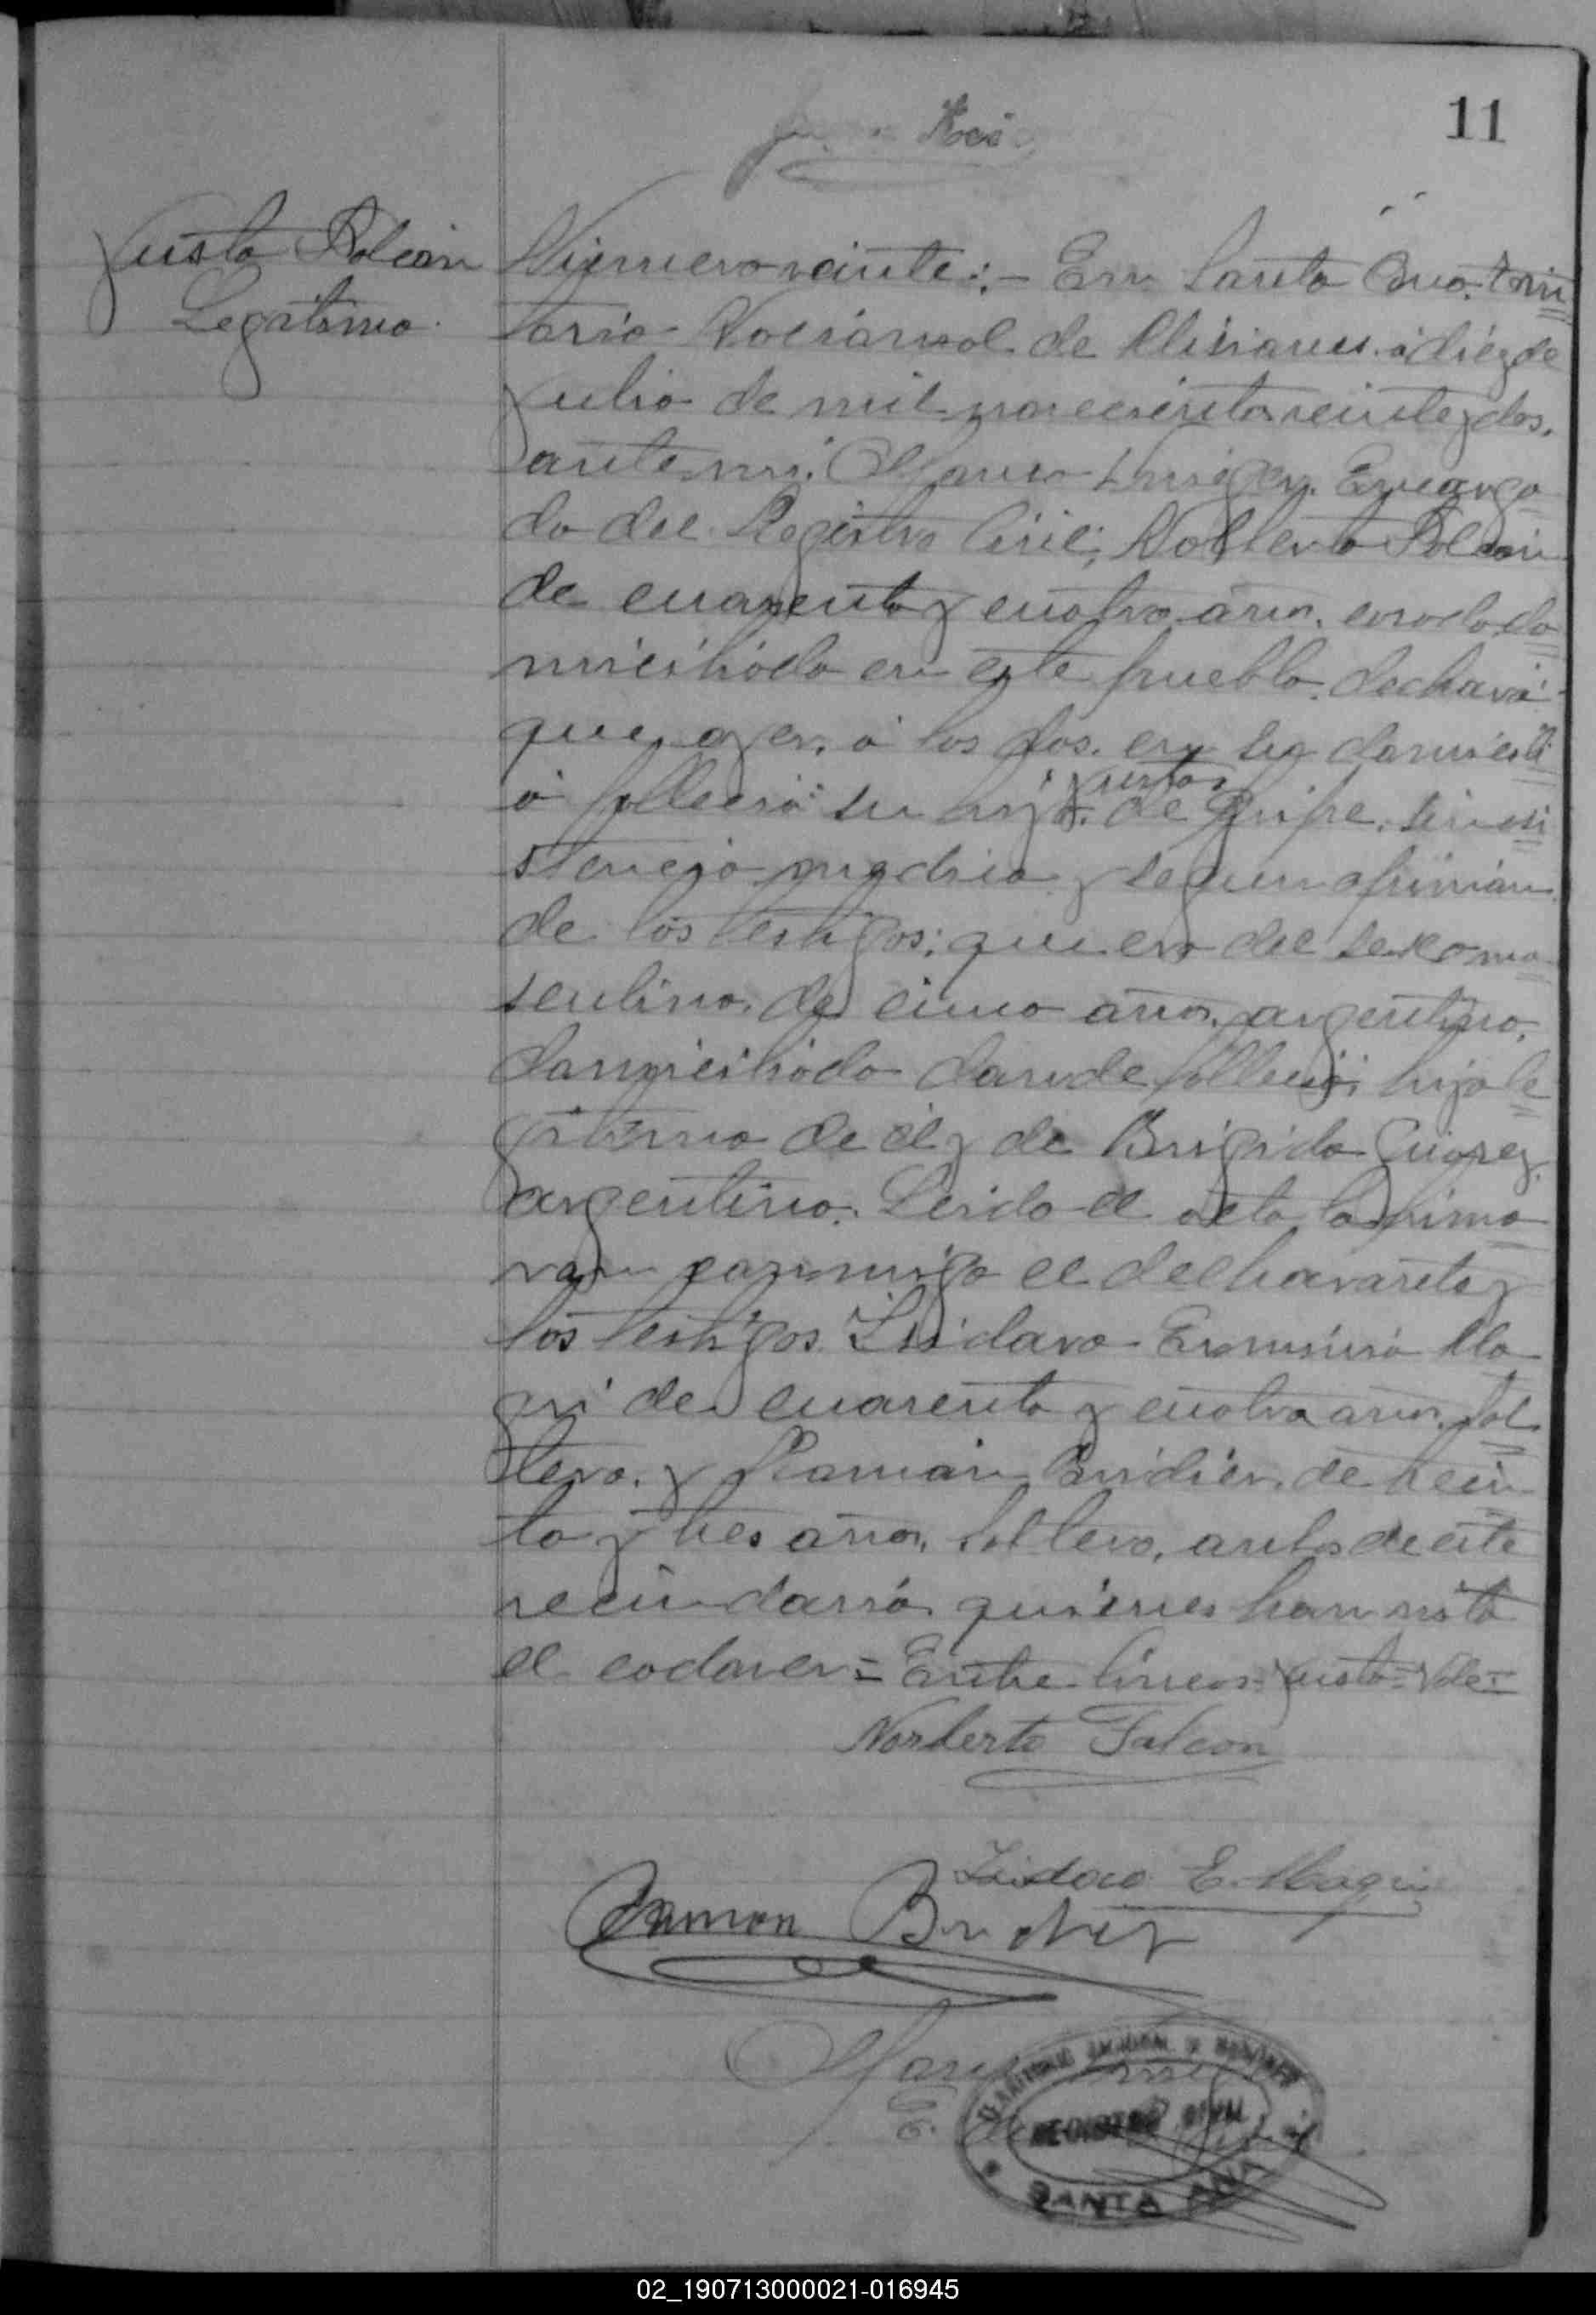 11
Justo Falcón
Legítimo.
Número veinte:- En Santa Ana, Terri
torio Nacional de Misiones, á diez de
Julio de mil novecientos veinte y dos,
ante mi, Encarga
do del Registro Civil; Norberto Falcón
de cuarenta y cuatro años, casado, do
miciliado en este pueblo, declaró
que ayer, á las dos, en su domicili
o falleció su hijo Justo, de gripe, sin asi
stencia médica y según opinión
de los testigos; que era del sexo ma
sculino, de cinco años, argentino,
domiciliado donde falleció; hijo le
gítimo de él y de Brígida
argentina. Leida el acta la firma
ron conmigo el declarante y
los testigos Isidoro Ma
de cuarenta y cuatro años, sol
tero, y Ramón de trein
ta y tres años, soltero, ambos de este
vecindario, quienes han visto
el cadaver = Entre líneas = Justo = Vale =
Norberto Falcon
Isidoro E.
Ramon
REGISTRO CIVIL
SANTA ANA
02_190713000021-016945